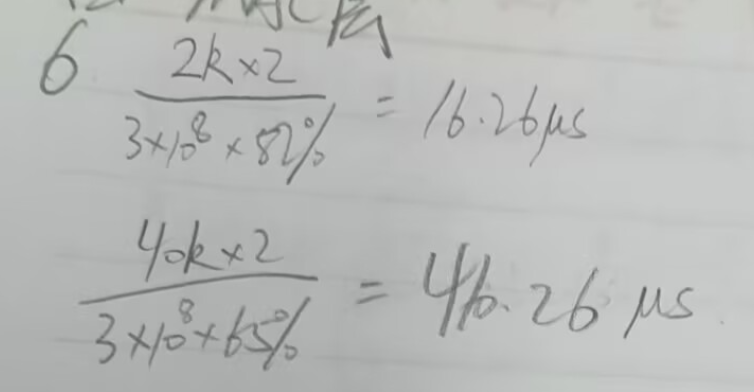 6 2k×2 / 3×10⁸×82% = 16.26μs
40k×2 / 3×10⁸×65% = 46.26 μs.